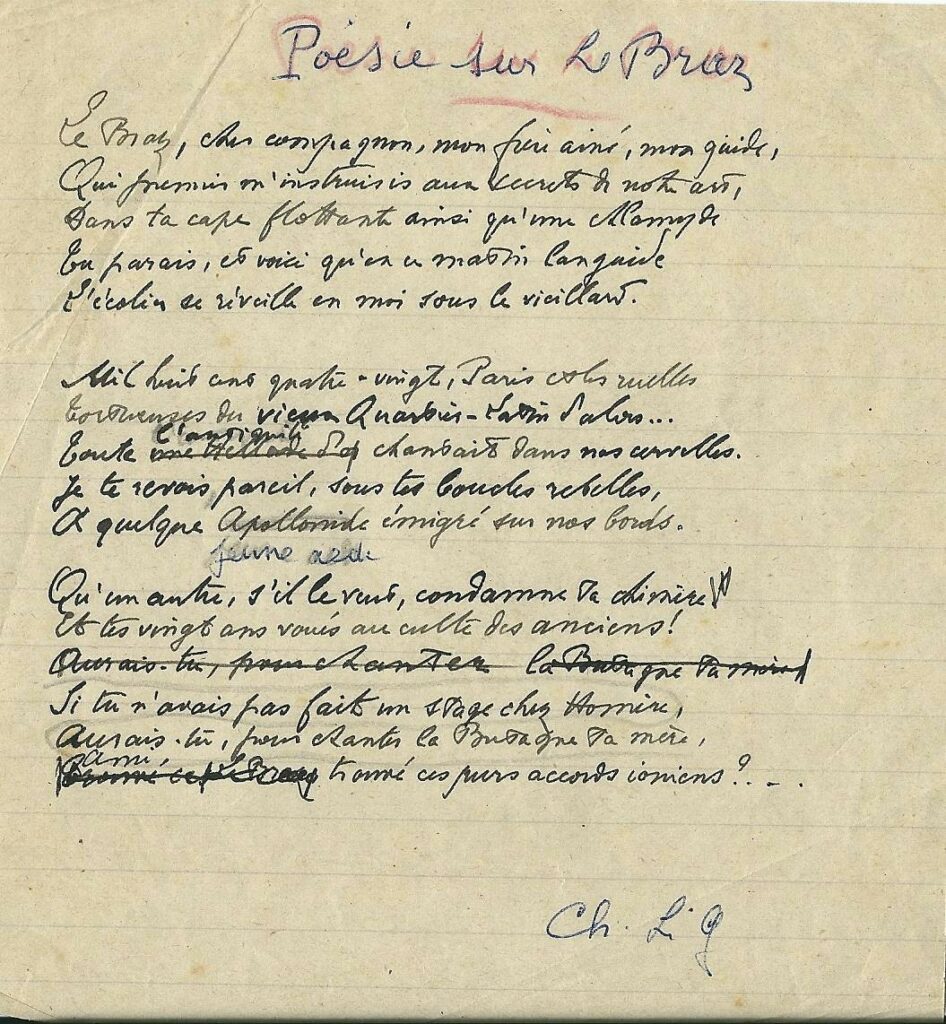 Poésie sur Le Braz
Le Braz, cher compagnon, mon frère ainé, mon guide,
Qui premier m'instruisis aux secrets de notre art,
Dans ta cape flottante ainsi qu'une chlamyde
Tu parais, et voici qu'en ce matin languide
L'écolier se réveille en moi sous le vieillard.
Mil huit cent quatre-vingt, Paris et les ruelles
Tortueuses du vieux Quartier-Latin d'alors...
l'antiquité
Toute une Hellade d' chantait dans nos cervelles.
Je te revois pareil, sous tes boucles rebelles,
A quelque Apollonide émigré sur nos bords.
jeune aède
Qu'un autre, s'il le veut, condamne ta chimère
Et tes vingt ans voués au culte des anciens!
Aurais-tu, pour chanter la Bretagne ta mère
Si tu n'avais pas fait un stage chez Homère,
Aurais-tu, pour chanter la Bretagne ta mère,
ami,
trouvé ces purs accords ioniens?...
Ch. L. G